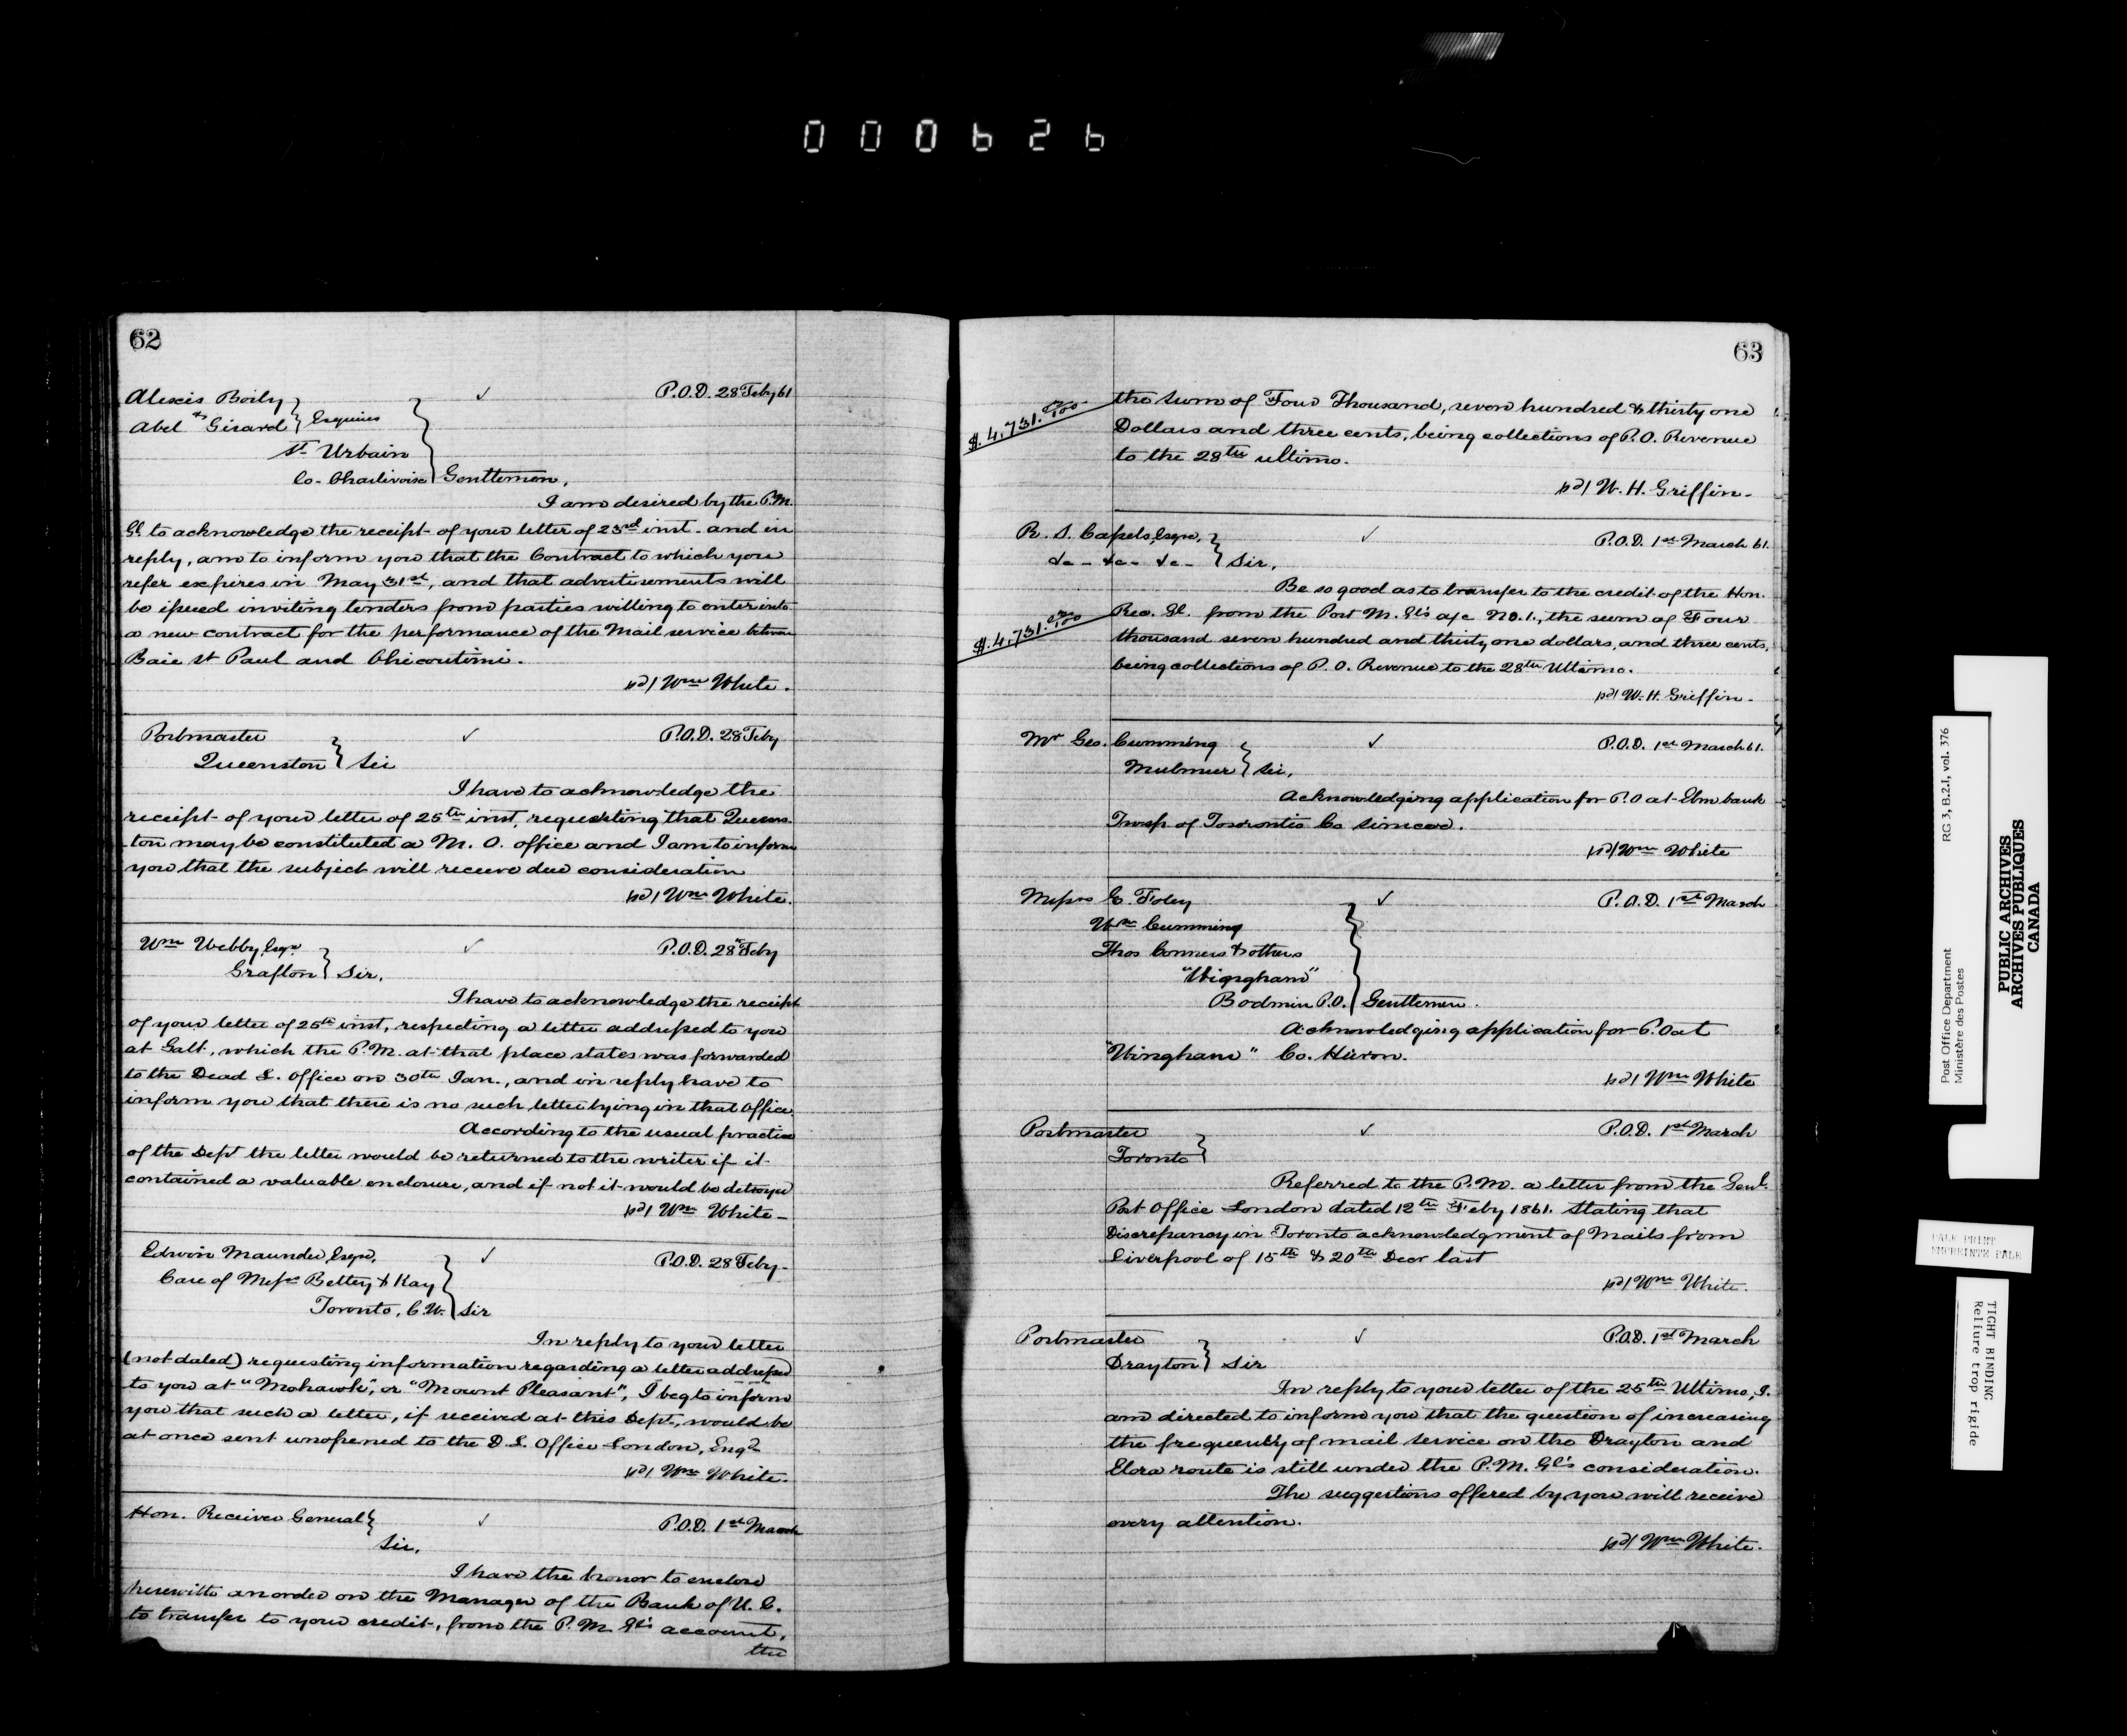 000626
62
Alexis Boily
& Abel Girard } Esquires
St Urbain
Co. Charlevoix } Gentlemen,
✓ P.O.D. 28 Feby 61
I am desired by the P.M.
Gl. to acknowledge the receipt of your letter of 23rd inst. and in
reply, am to inform you that the Contract to which you
refer expires in May 31st, and that advertisements will
be issued inviting tenders from parties willing to enter into
a new contract for the performance of the Mail service between
Baie St Paul and Chicoutimi.
sd/ Wm White.
Postmaster ✓ P.O.D. 28 Feby
Queenston } Sir
I have to acknowledge the
receipt of your letter of 25th inst, requesting that Queens-
ton may be constituted a M. O. office and I am to inform
you that the subject will receive due consideration
sd/ Wm White.
Wm Webby, Esqre ✓ P.O.D. 28th Feby
Grafton } Sir,
I have to acknowledge the receipt
of your letter of 25th inst, respecting a letter addressed to you
at Galt, which the P.M. at that place states was forwarded
to the Dead L. Office on 30th Jan., and in reply have to
inform you that there is no such letter lying in that Office.
According to the usual practice
of the Dept the letter would be returned to the writer if it
contained a valuable enclosure, and if not it would be detroyed
sd/ Wm White
Edwin Maunder, Esqre, ✓ P.O.D. 28 Feby
Care of Messrs Bettey & Kay
Toronto, C.W. } Sir
In reply to your letter
(not dated) requesting information regarding a letter addressed
to you at "Mohawk", or "Mount Pleasant", I beg to inform
you that such a letter, if received at this Dept, would be
at once sent unopened to the D. L. Office London, Engd
sd/ Wm White.
Hon. Receiver General } ✓ P.O.D. 1st March
Sir,
I have the honor to enclose
herewith an order on the Manager of the Bank of U. C.
to transfer to your credit, from the P. M. Gl's account,
the
63
$4,731.03/100 the sum of Four Thousand, seven hundred & thirty one
Dollars and three cents, being collections of P.O. Revenue
to the 28th ultimo.
sd/ W. H. Griffin.
R. S. Cassels, Esqre, ✓ P.O.D. 1st March 61.
&c- &c- &c- } Sir,
Be so good as to transfer to the credit of the Hon.
$4,731.03/100 Rec. Gl. from the Post M. Gl's a/c No. 1., the sum of Four
thousand seven hundred and thirty one dollars, and three cents,
being collections of P. O. Revenue to the 28th Ultimo.
sd/ W. H. Griffin.
Mr Geo. Cumming ✓ P.O.D. 1st March 61.
Mulmur } Sir,
Acknowledging application for P.O at Elm bank
Twsp. of Tosorontio Co Simcoe.
sd/ Wm White
Messrs E. Foley ✓ P.O.D. 1st March
Wm Cumming
Thos Conners & others
"Wingham"
Bodmin P.O. } Gentlemen.
Acknowledging application for P.O at
"Wingham" Co. Huron.
sd/ Wm White
Postmaster ✓ P.O.D. 1st March
Toronto }
Referred to the P.M. a letter from the Genl.
Post Office London dated 12th Feby 1861. Stating that
Discrepancy in Toronto acknowledgment of Mails from
Liverpool of 15th & 20th Decr last
sd/ Wm White.
Postmaster ✓ P.O.D. 1st March
Drayton } Sir
In reply to your letter of the 25th Ultimo, I.
am directed to inform you that the question of increasing
the frequency of mail service on the Drayton and
Elora route is still under the P.M. Gl's consideration.
The suggestions offered by you will receive
every attention.
sd/ Wm White.
Post Office Department RG 3, B.2.1, vol. 376
Ministère des Postes
PUBLIC ARCHIVES
ARCHIVES PUBLIQUES
CANADA
PALE PRINT
EMPREINTE PALE
TIGHT BINDING
Reliure trop rigide